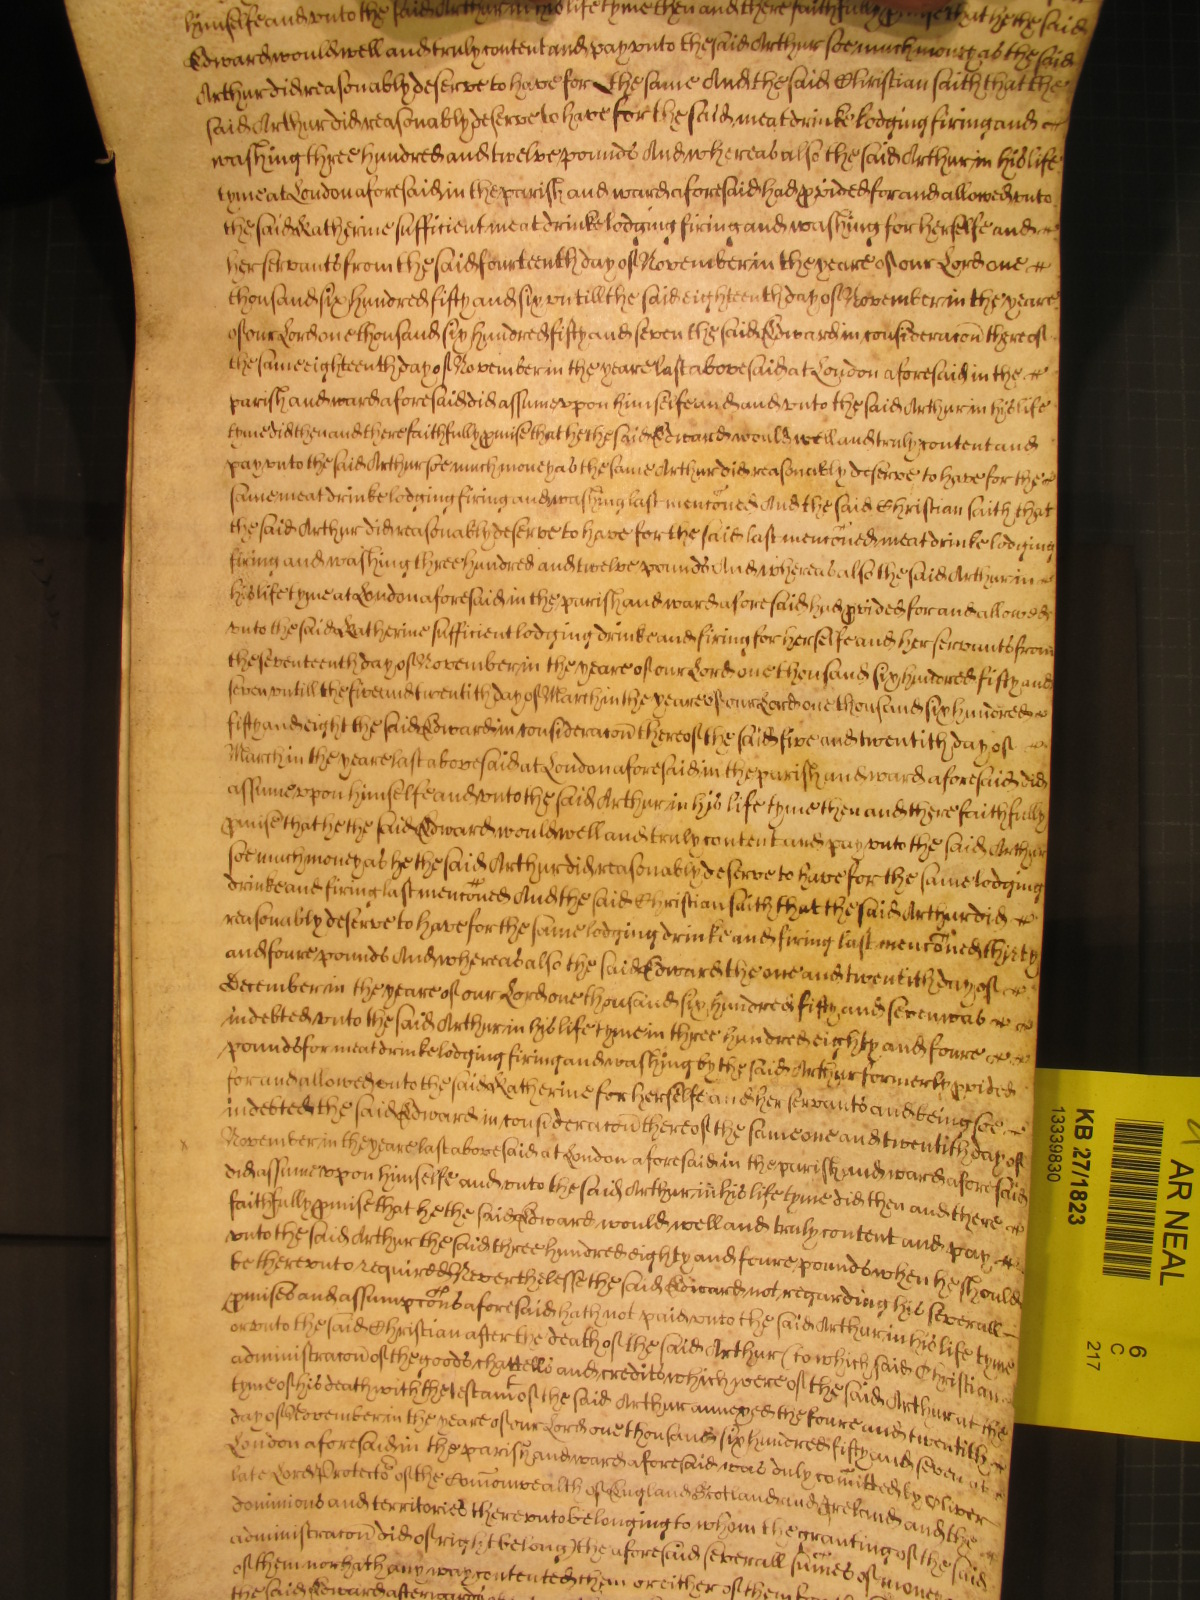 himselfe and vnto the said Arthur in his life tyme then and there faithfully pmise that he the said
Edward would well and truly content and pay vnto the said Arthur soe much money as the said
Arthur did reasonably deserve to have for the same And the said Christian saith that the
said Arthur did reasonably deserve to have for the said meat drinke lodging firing and
washing three hundred and twelve pounds And whereas also the said Arthur in his life
tyme at London aforesaid in the parish and ward aforesaid had pvided for and allowed vnto
the said Katherine sufficient meat drinke lodging firing and washing for herselfe and
her servants from the said fourteenth day of November in the yeare of our Lord one
thousand six hundred fifty and six vntill the said eighteenth day of November in the yeare
of our Lord one thousand six hundred fifty and seven the said Edward in consideracon thereof
the same eighteenth day of November in the yeare last abovesaid at London aforesaid in the
parish and ward aforesaid did assume vpon himselfe and and vnto the said Arthur in his life
tyme did then and there faithfully pmise that he the said Edward would well and truly content and
pay vnto the said Arthur soe much money as the same Arthur did reasonably deserve to have for the
same meat drinke lodging firing and washing last menconed And the said Christian saith that
the said Arthur did reasonably deserve to have for the said last menconed meat drinke lodging
firing and washing three hundred and twelve pounds And whereas also the said Arthur in
his life tyme at London aforesaid in the parish and ward aforesaid had pvided for and allowed
vnto the said Katherine sufficient lodging drinke and firing for herselfe and her servants from
the seventeenth day of November in the yeare of our Lord one thousand six hundred fifty and
seven vntill the five and twentith day of March in the yeare of our Lord one thousand six hundred
fifty and eight the said Edward in consideracon thereof the said five and twentith day of
March in the yeare last abovesaid at London aforesaid in the parish and ward aforesaid did
assume vpon himselfe and vnto the said Arthur in his life tyme then and there faithfully
pmise that he the said Edward would well and truly content and pay vnto the said Arthur
soe much money as he the said Arthur did reasonably deserve to have for the same lodging
drinke and firing last menconed And the said Christian saith that the said Arthur did
reasonably deserve to have for the same lodging drinke and firing last menconed thirty
and foure pounds And whereas also the said Edward the one and twentith day of
December in the yeare of our Lord one thousand six hundred fifty and seven was
indebted vnto the said Arthur in his life tyme in three hundred eighty and foure
pounds for meat drinke lodging firing and washing by the said Arthur formerly pvided
for and allowed vnto the said Katherine for herselfe and her servants and being soe
indebted the said Edward in consideracon thereof the same one and twentith day of
November in the yeare last abovesaid at London aforesaid in the parish and ward aforesaid
did assume vpon himselfe and vnto the said Arthur in his life tyme did then and there
faithfully pmise that he the said Edward would well and truly content and pay
vnto the said Arthur the said three hundred eighty and foure pounds when he should
be therevnto required Neverthelesse the said Edward not regarding his severall
pmises and assumpcons aforesaid hath not paid vnto the said Arthur in his life tyme
or vnto the said Christian after the death of the said Arthur (to which said Christian
administracon of the goods chattells and credits which were of the said Arthur at the
tyme of his death with the testamt of the said Arthur annexed the foure and twentith
day of November in the yeare of our Lord one thousand six hundred fifty and seven at
London aforesaid in the parish and ward aforesaid was duly comitted by Oliver
late Lord Protector of the Comonwealth of England Scotland and Ireland and the
dominions and territories therevnto belonging to whom the granting of the said
administracon did of right belong) the aforesaid severall sumes of money
of them nor hath any way contented them or either of them
the said Edward afterwards
AR NEAL
6
C
217
KB 27/1823
13339830